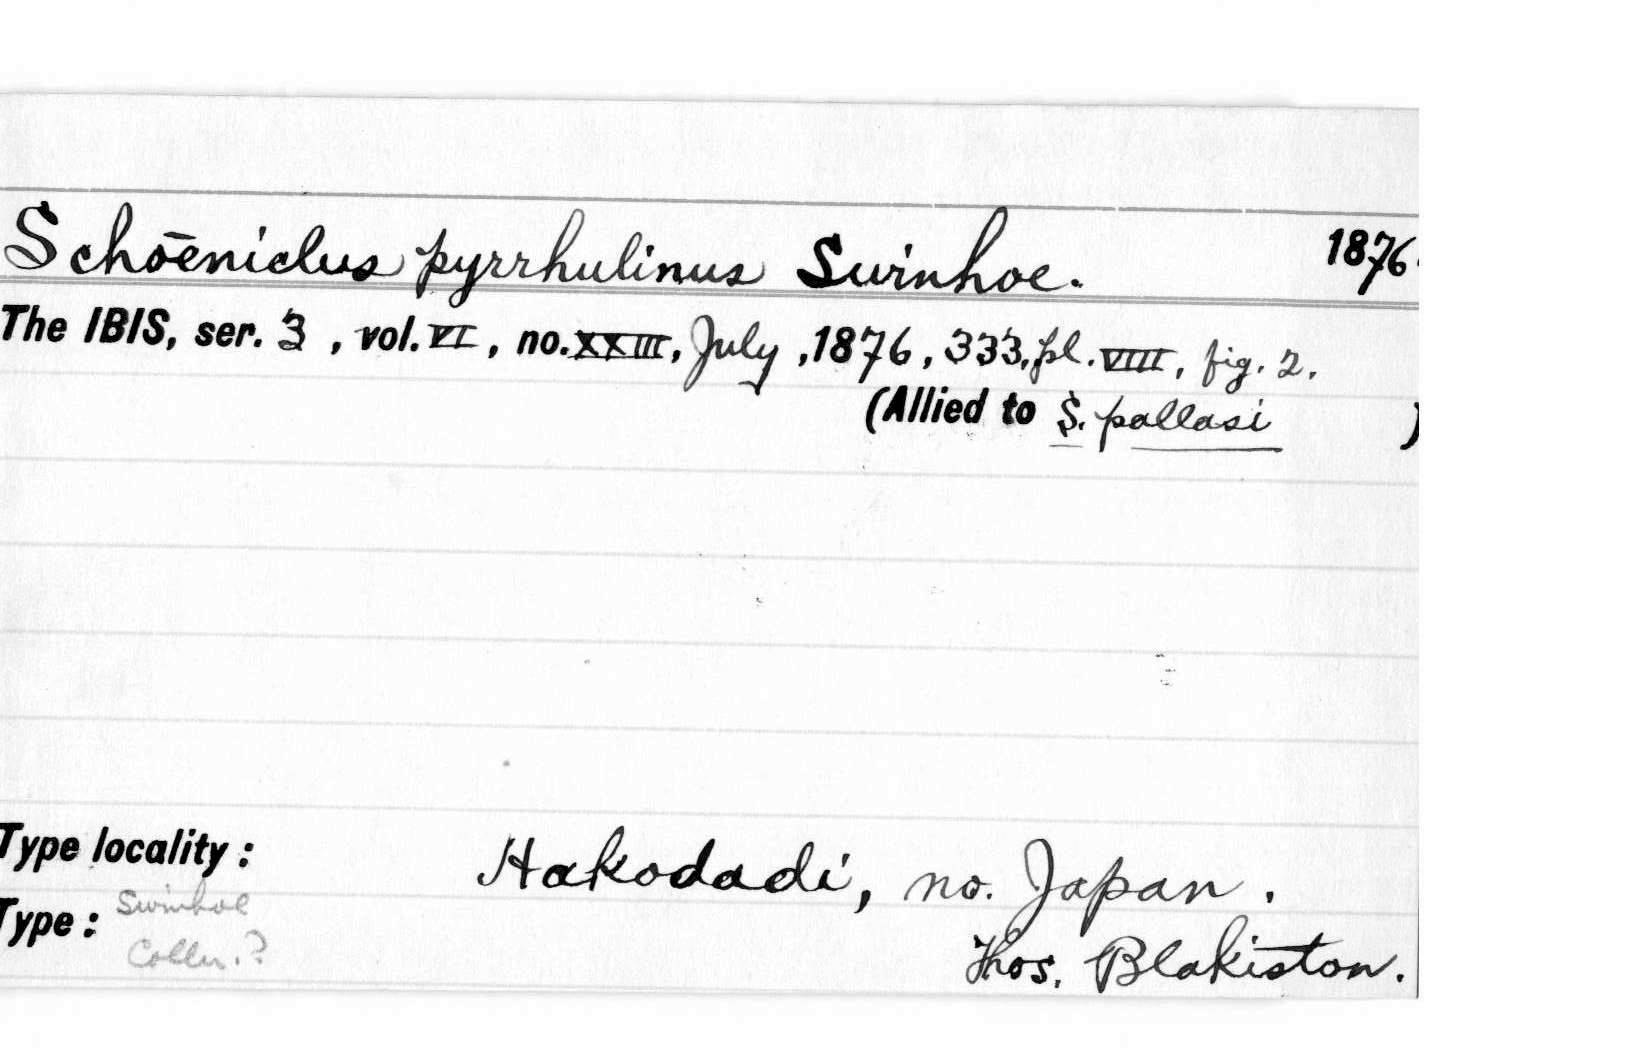 Schoēniclus pyrrhulinus Swinhoe. 1876.
The IBIS, ser. 3, vol. VI, no. XXIII, July, 1876, 333, pl. VIII, fig. 2.
(Allied to S. pallasi )
Type locality: Hakodadi, no. Japan.
Type: Swinhoe Colln.? Thos. Blakiston.